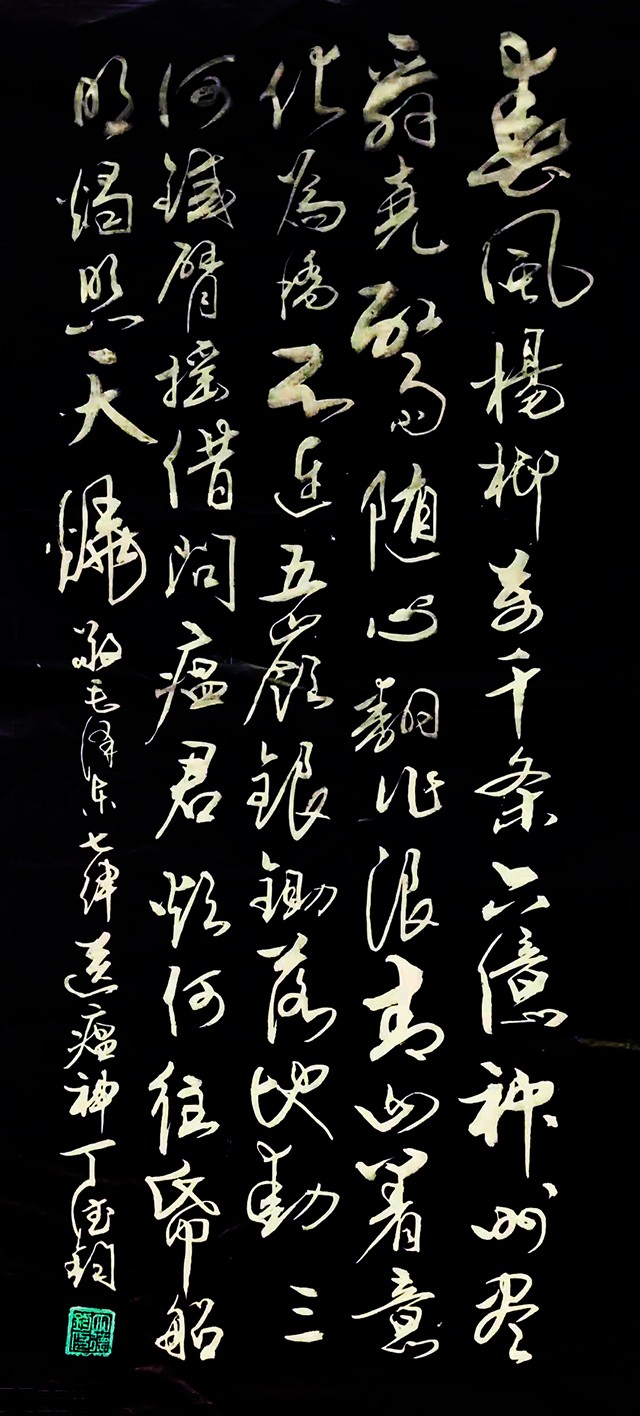 春風楊柳萬千条六億神州尽
舜堯紅雨随心翻作浪青山着意
化為橋天连五嶺銀鋤落地動三
河鐵臂摇借問瘟君欲何往紙船
明燭照天燒 敬毛澤東七律送瘟神 丁德鈞